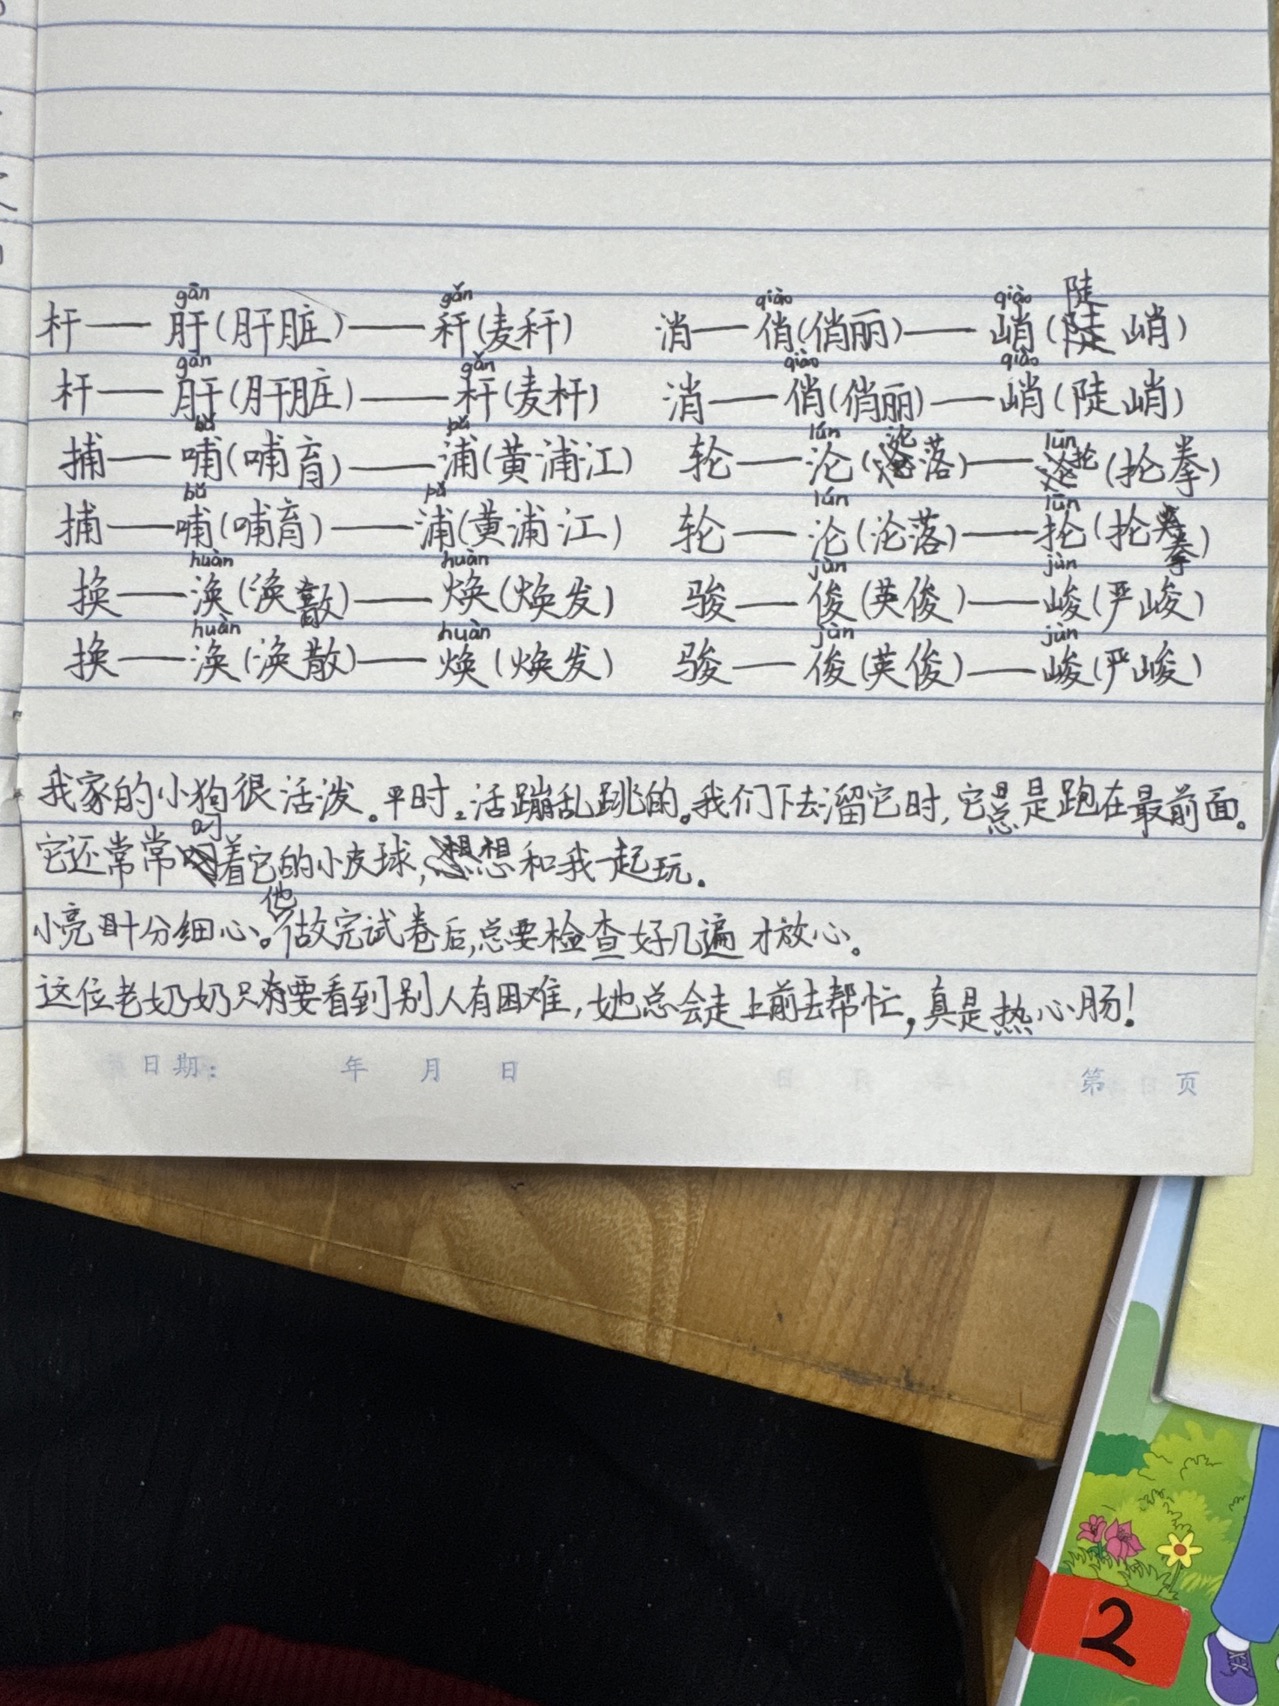 杆——肝gān(肝脏)——秆gǎn(麦秆) 消——俏qiào(俏丽)——峭qiào(陡峭)
杆——肝gān(肝脏)——杆gǎn(麦杆) 消——俏qiào(俏丽)——峭qiào(陡峭)
捕——哺bǔ(哺育)——浦pǔ(黄浦江) 轮——沦lún(沦落)——抡lūn(抡拳)
捕——哺bǔ(哺育)——浦pǔ(黄浦江) 轮——沦lún(沦落)——抡lūn(抡拳)
换——涣huàn(涣散)——焕huàn(焕发) 骏——俊jùn(英俊)——峻jùn(严峻)
换——涣huàn(涣散)——焕huàn(焕发) 骏——俊jùn(英俊)——峻jùn(严峻)
我家的小狗很活泼。平时,活蹦乱跳的。我们下去溜它时,它总是跑在最前面。
它还常常叼着它的小皮球,想和我一起玩.
小亮十分细心。他做完试卷后,总要检查好几遍才放心。
这位老奶奶只要看到别人有困难,她总会走上前去帮忙,真是热心肠!
日期: 年 月 日 第 页
2